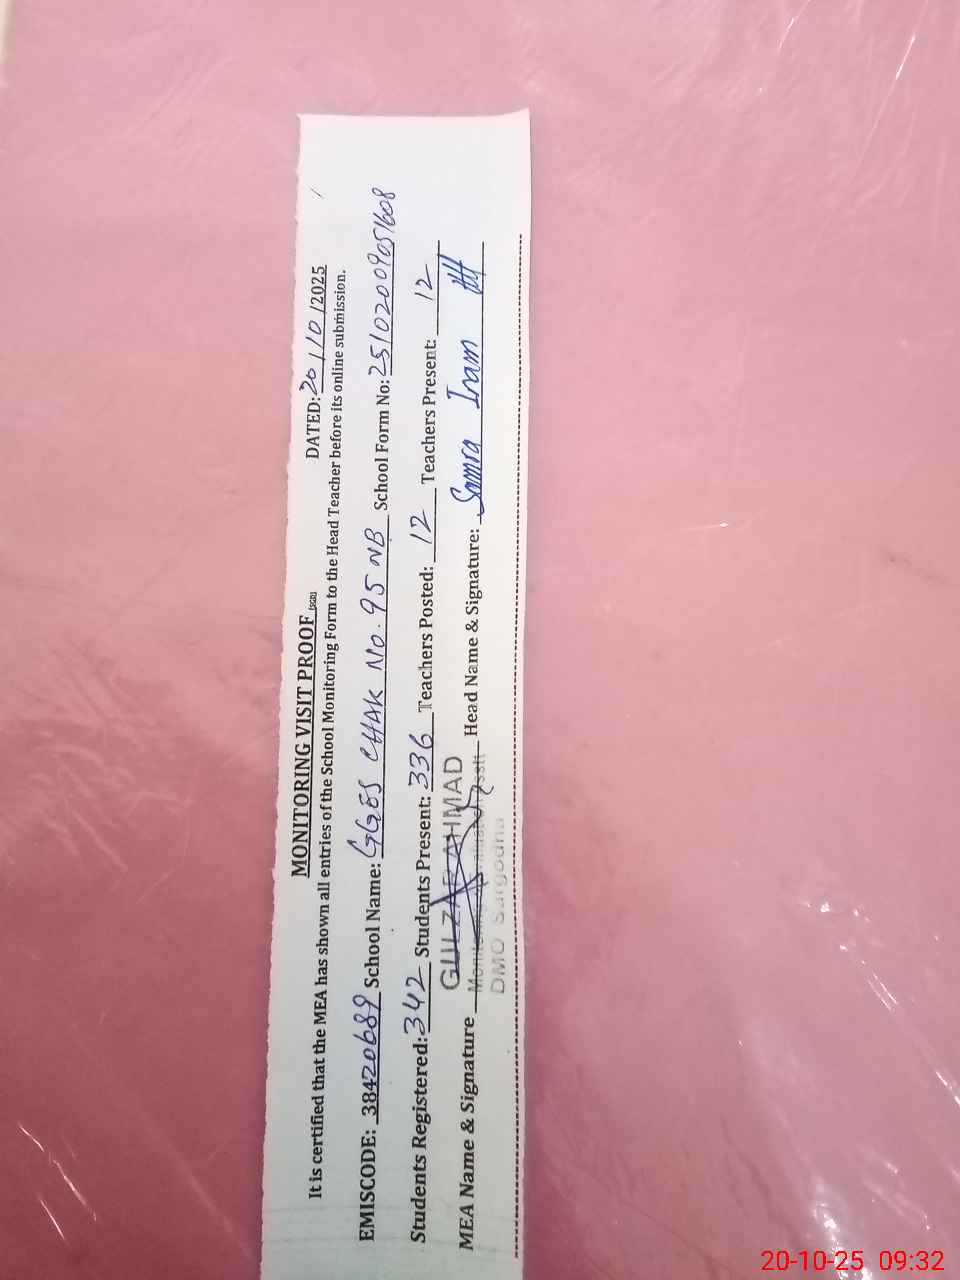 MONITORING VISIT PROOF (SGD) DATED: 20/10/2025
It is certified that the MEA has shown all entries of the School Monitoring Form to the Head Teacher before its online submission.
EMISCODE: 38420689 School Name: GGES CHAK NO. 95 NB School Form No: 25102009051608
Students Registered: 342 Students Present: 336 Teachers Posted: 12 Teachers Present: 12
MEA Name & Signature GULZAR AHMAD Head Name & Signature: Samra Iram
Monitoring & Evaluation Asstt
DMO Sargodha
20-10-25 09:32